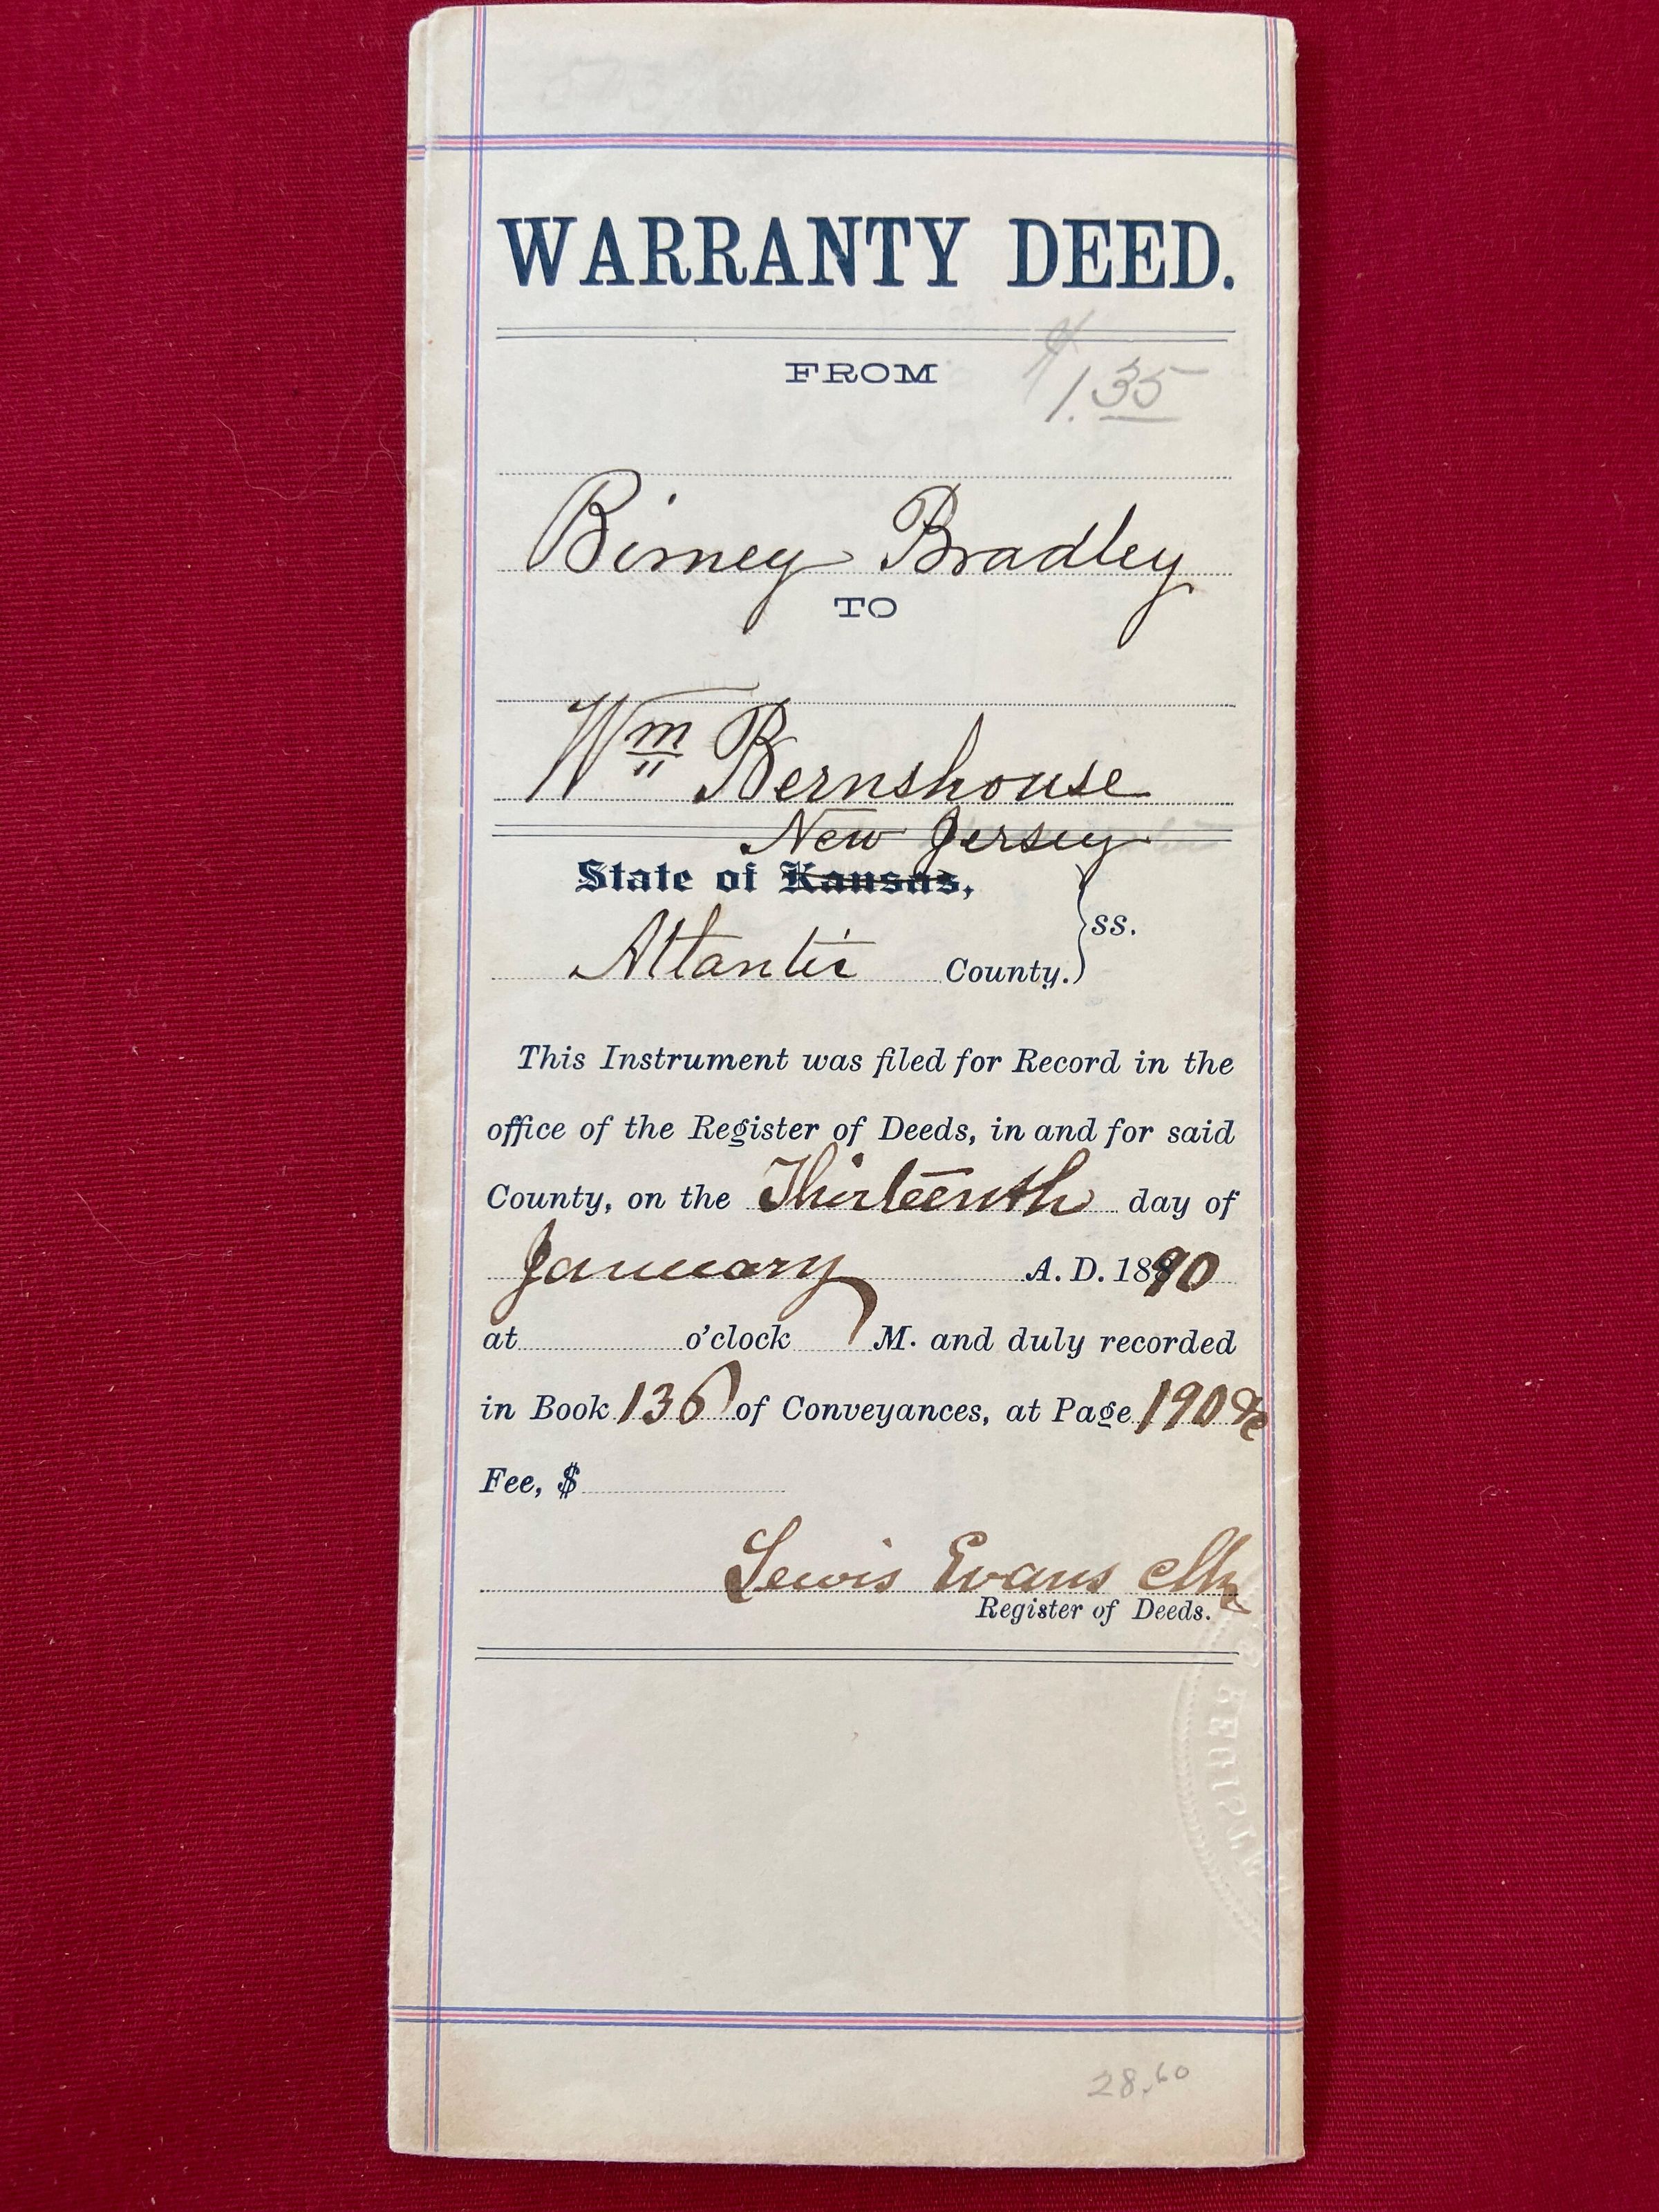 WARRANTY DEED.
FROM
$1.35
Birney Bradley
TO
Wm Bernshouse
New Jersey
State of Kansas,
ss.
Atlantic County.
This Instrument was filed for Record in the
office of the Register of Deeds, in and for said
County, on the Thirteenth day of
January A. D. 1890
at o'clock M. and duly recorded
in Book 136 of Conveyances, at Page 190 &c
Fee, $
Lewis Evans Clk
Register of Deeds.
28.60